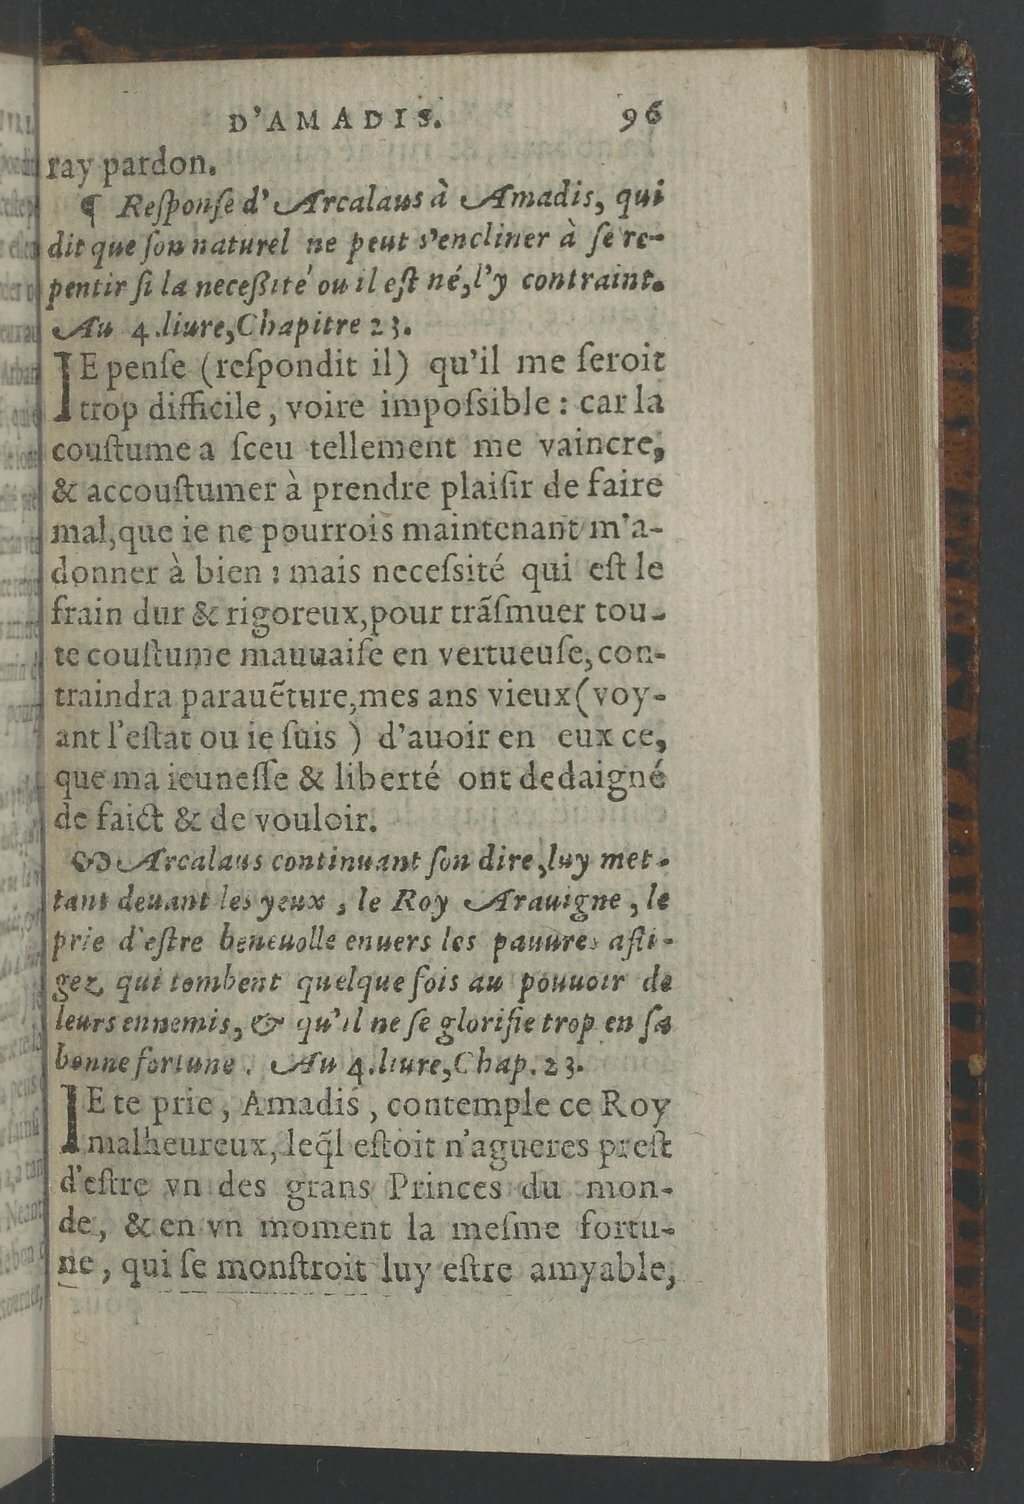 D'AMADIS. 96
ray pardon.
¶ Reſponſe d'Arcalaus à Amadis, qui
dit que ſon naturel ne peut s'encliner à ſe re-
pentir ſi la neceſsité ou il eſt né, l'y contraint.
Au 4. liure, Chapitre 23.
IE penſe (reſpondit il) qu'il me ſeroit
trop difficile, voire impoſsible : car la
couſtume a ſceu tellement me vaincre,
& accouſtumer à prendre plaiſir de faire
mal, que ie ne pourrois maintenant m'a-
donner à bien : mais neceſsité qui eſt le
frain dur & rigoreux, pour trãſmuer tou-
te couſtume mauuaiſe en vertueuſe, con-
traindra parauẽture, mes ans vieux (voy-
ant l'eſtat ou ie ſuis ) d'auoir en eux ce,
que ma ieuneſſe & liberté ont dedaigné
de faict & de vouloir.
Arcalaus continuant ſon dire, luy met-
tant deuant les yeux , le Roy Arauigne , le
prie d'eſtre beneuolle enuers les pauures afli-
gez, qui tombent quelque fois au pouuoir de
leurs ennemis, & qu'il ne ſe glorifie trop en ſa
bonne fortune. Au 4. liure, Chap. 23.
IE te prie, Amadis, contemple ce Roy
malheureux, leq̃l eſtoit n'agueres preſt
d'eſtre vn des grans Princes du mon-
de, & en vn moment la meſme fortu-
ne, qui ſe monſtroit luy eſtre amyable,